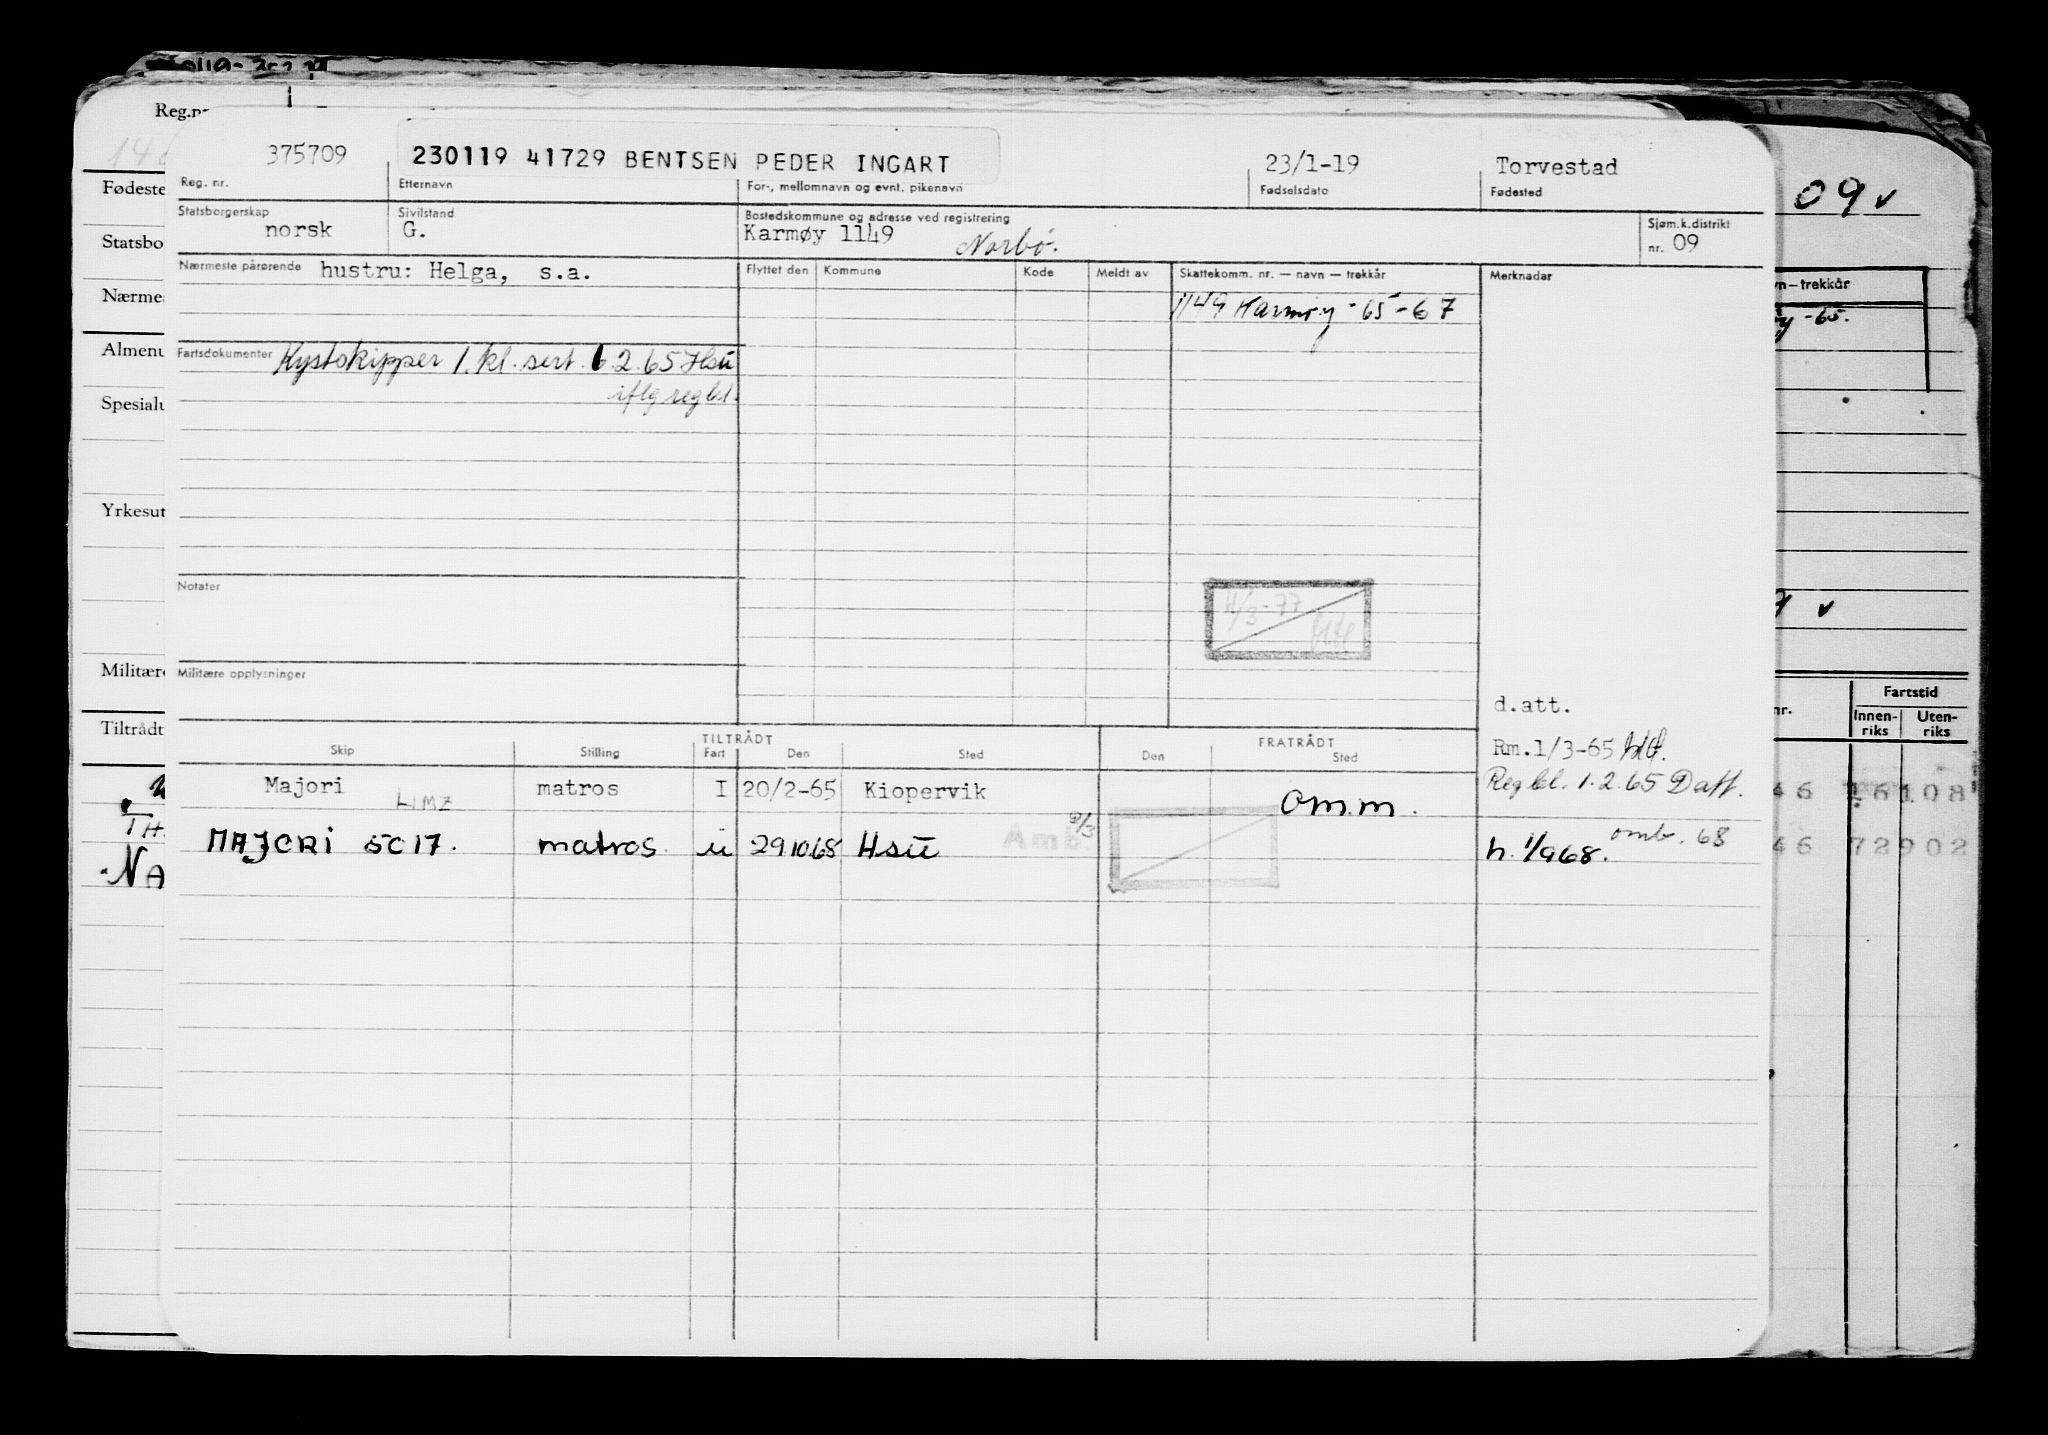 Reg.nr
375709 230119 41729 BENTSEN PEDER INGART 23/1-19 Torvestad
Reg. nr. Etternavn For-, mellomnavn og evnt. pikenavn Fødselsdato Fødested
Statsborgerskap Sivilstand Bostedskommune og adresse ved registrering Sjøm.k.distrikt
norsk G. Karmøy 1149 Norbø. nr. 09
Nærmeste pårørende hustru: Helga, s.a. Flyttet den Kommune Kode Meldt av Skattekomm. nr. — navn — trekkår Merknader
1149 Karmøy -65-67
Fartsdokumenter Kystskipper 1. kl. sert. 6.2.65 Hsu
iflg regbl.
Notater
4/3-77
Militære opplysninger
d.att.
TILTRÅDT FRATRÅDT
Skip Stilling Fart Den Sted Den Sted
Rm.1/3-65
Majori LIMZ matros I 20/2-65 Kiopervik omm. Regbl. 1.2.65 Datt.
MAJORI 5017. matros u 291068 Hsu Amb. 9/3 h. 1/968. omb. 68
Fødeste
Statsbo
Nærme
Almenu
Spesialu
Yrkesut
Militære
Tiltrådt
TH
NA
09 v
vn—trekkår
y -65.
v
nr. Fartstid
Innen-riks Uten-riks
46 16108
46 72902